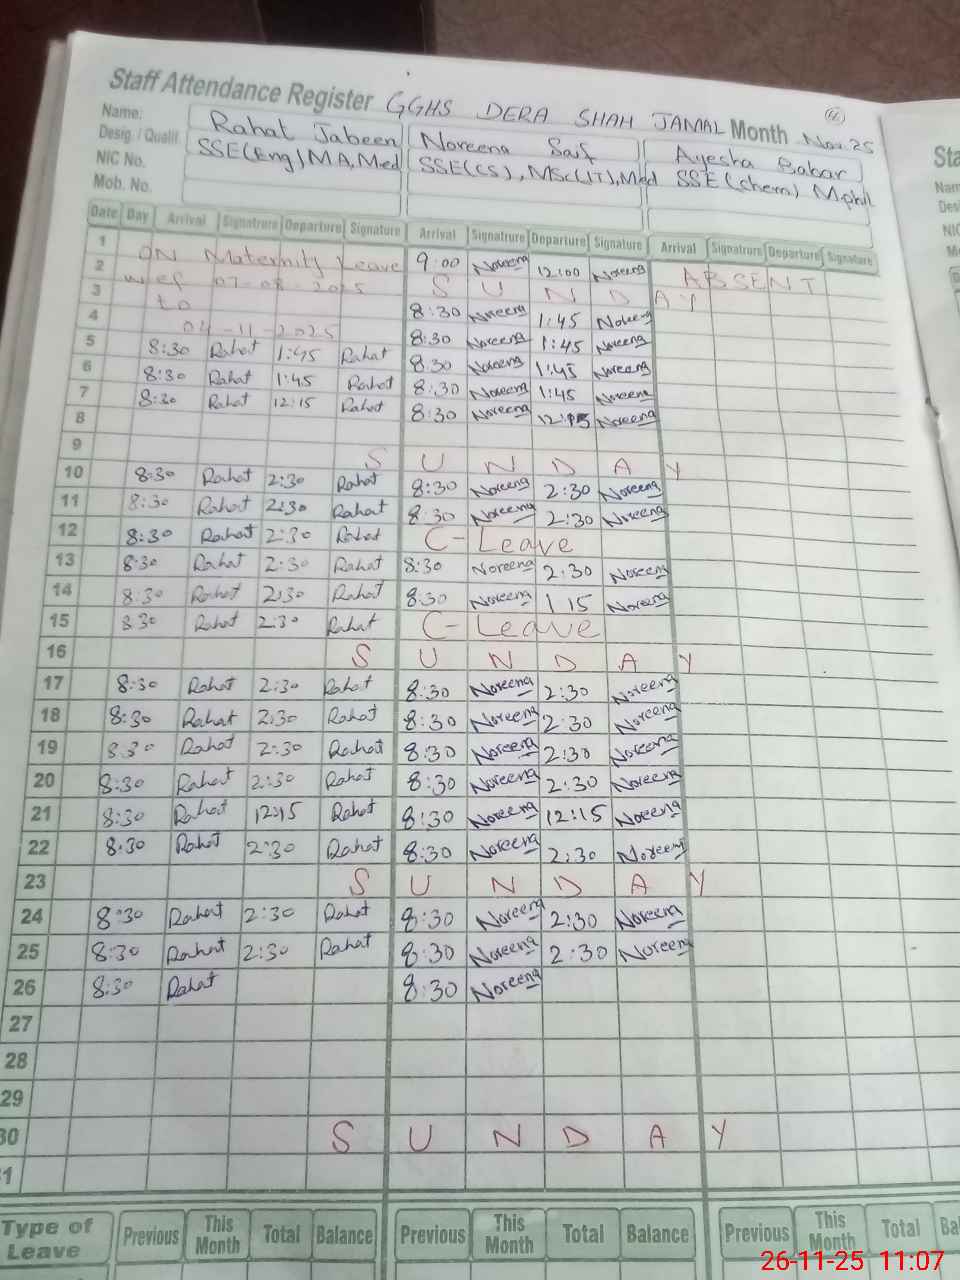 Staff Attendance Register GGHS DERA SHAH JAMAL Month Nov.25
Name: Rahat Jabeen Noreena Saif Ayesha Babar
Desig. / Qualif. SSE(Eng) MA, Med SSE(CS), MSc(IT), Med SSE(chem) Mphil
NIC No.
Mob. No.
Date Day Arrival Signatrure Departure Signature Arrival Signatrure Departure Signature Arrival Signatrure Departure Signature
1 ON Maternity Leave 9:00 Noreena 12:00 Noreena ABSENT
2 wef 07-08-2025 S U N D A Y
3 to 8:30 Noreena 1:45 Noreena
4 04-11-2025 8:30 Noreena 1:45 Noreena
5 8:30 Rahat 1:45 Rahat 8:30 Noreena 1:45 Noreena
6 8:30 Rahat 1:45 Rahat 8:30 Noreena 1:45 Noreena
7 8:30 Rahat 12:15 Rahat 8:30 Noreena 12:15 Noreena
8
9 S U N D A Y
10 8:30 Rahat 2:30 Rahat 8:30 Noreena 2:30 Noreena
11 8:30 Rahat 2:30 Rahat 8:30 Noreena 2:30 Noreena
12 8:30 Rahat 2:30 Rahat C-Leave
13 8:30 Rahat 2:30 Rahat 8:30 Noreena 2:30 Noreena
14 8:30 Rahat 2:30 Rahat 8:30 Noreena 1 15 Noreena
15 8:30 Rahat 2:30 Rahat C-Leave
16 S U N D A Y
17 8:30 Rahat 2:30 Rahat 8:30 Noreena 2:30 Noreena
18 8:30 Rahat 2:30 Rahat 8:30 Noreena 2:30 Noreena
19 8:30 Rahat 2:30 Rahat 8:30 Noreena 2:30 Noreena
20 8:30 Rahat 2:30 Rahat 8:30 Noreena 2:30 Noreena
21 8:30 Rahat 12:15 Rahat 8:30 Noreena 12:15 Noreena
22 8:30 Rahat 2:30 Rahat 8:30 Noreena 2:30 Noreena
23 S U N D A Y
24 8:30 Rahat 2:30 Rahat 8:30 Noreena 2:30 Noreena
25 8:30 Rahat 2:30 Rahat 8:30 Noreena 2:30 Noreena
26 8:30 Rahat 8:30 Noreena
27
28
29
30 S U N D A Y
31
Type of Leave Previous This Month Total Balance Previous This Month Total Balance Previous This Month Total
26-11-25 11:07